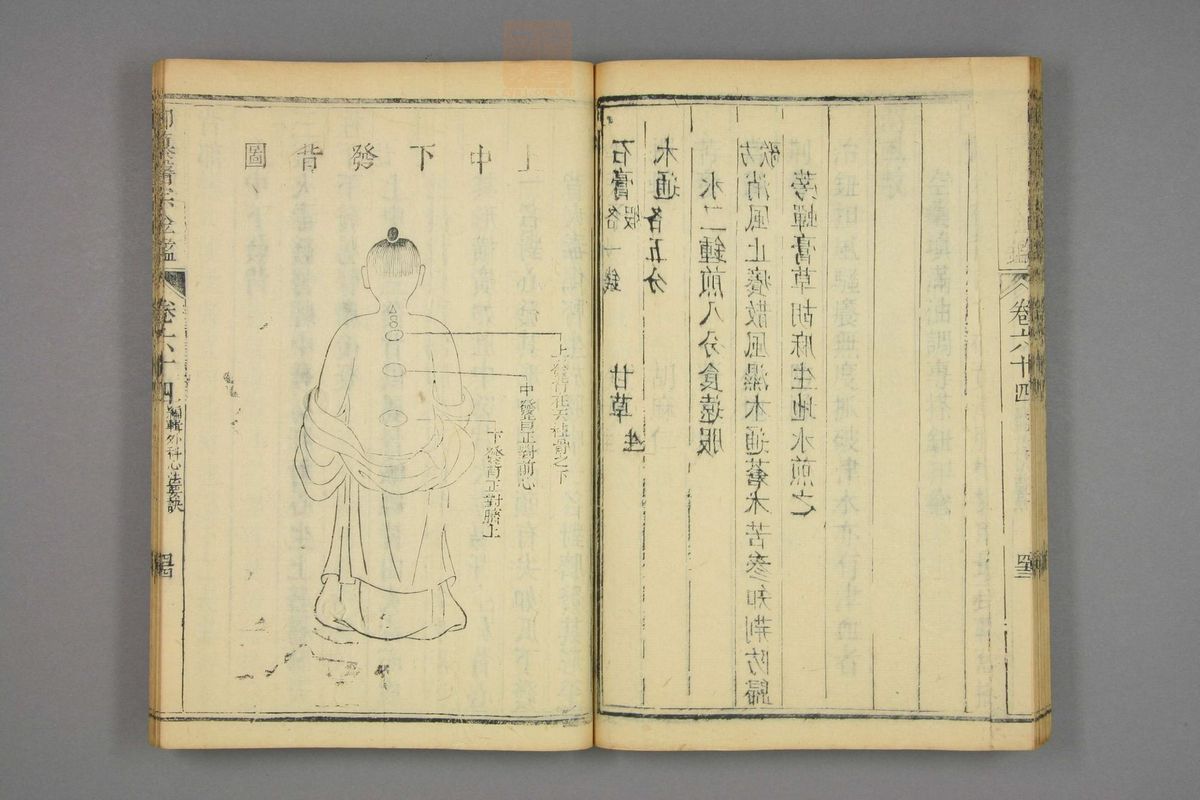 石膏煅各一錢　甘草生
木通各五分
水二鍾煎八分食遠服
方歌消風止癢散風濕木通蒼朮苦參知荊防歸
蒡蟬膏草胡麻生地水煎之
鑑
卷六十四
上中下發背圖
上發背在天柱骨之下
中發背正對前心
下發背正對臍上
醫宗金鑑
卷六十四
編輯外科心法要訣